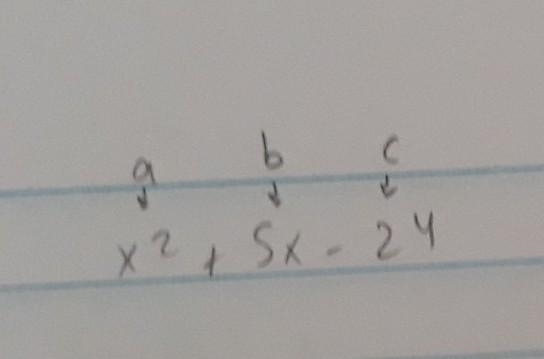 a b c
x² + 5x - 24